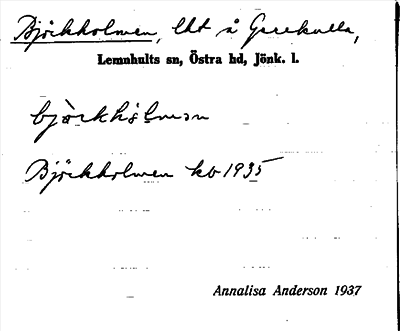 Björkholmen, lht å Greekulla,
Lemnhults sn, Östra hd, Jönk. l.
bjòrkhòlmən
Björkholmen kb 1935
Annalisa Anderson 1937